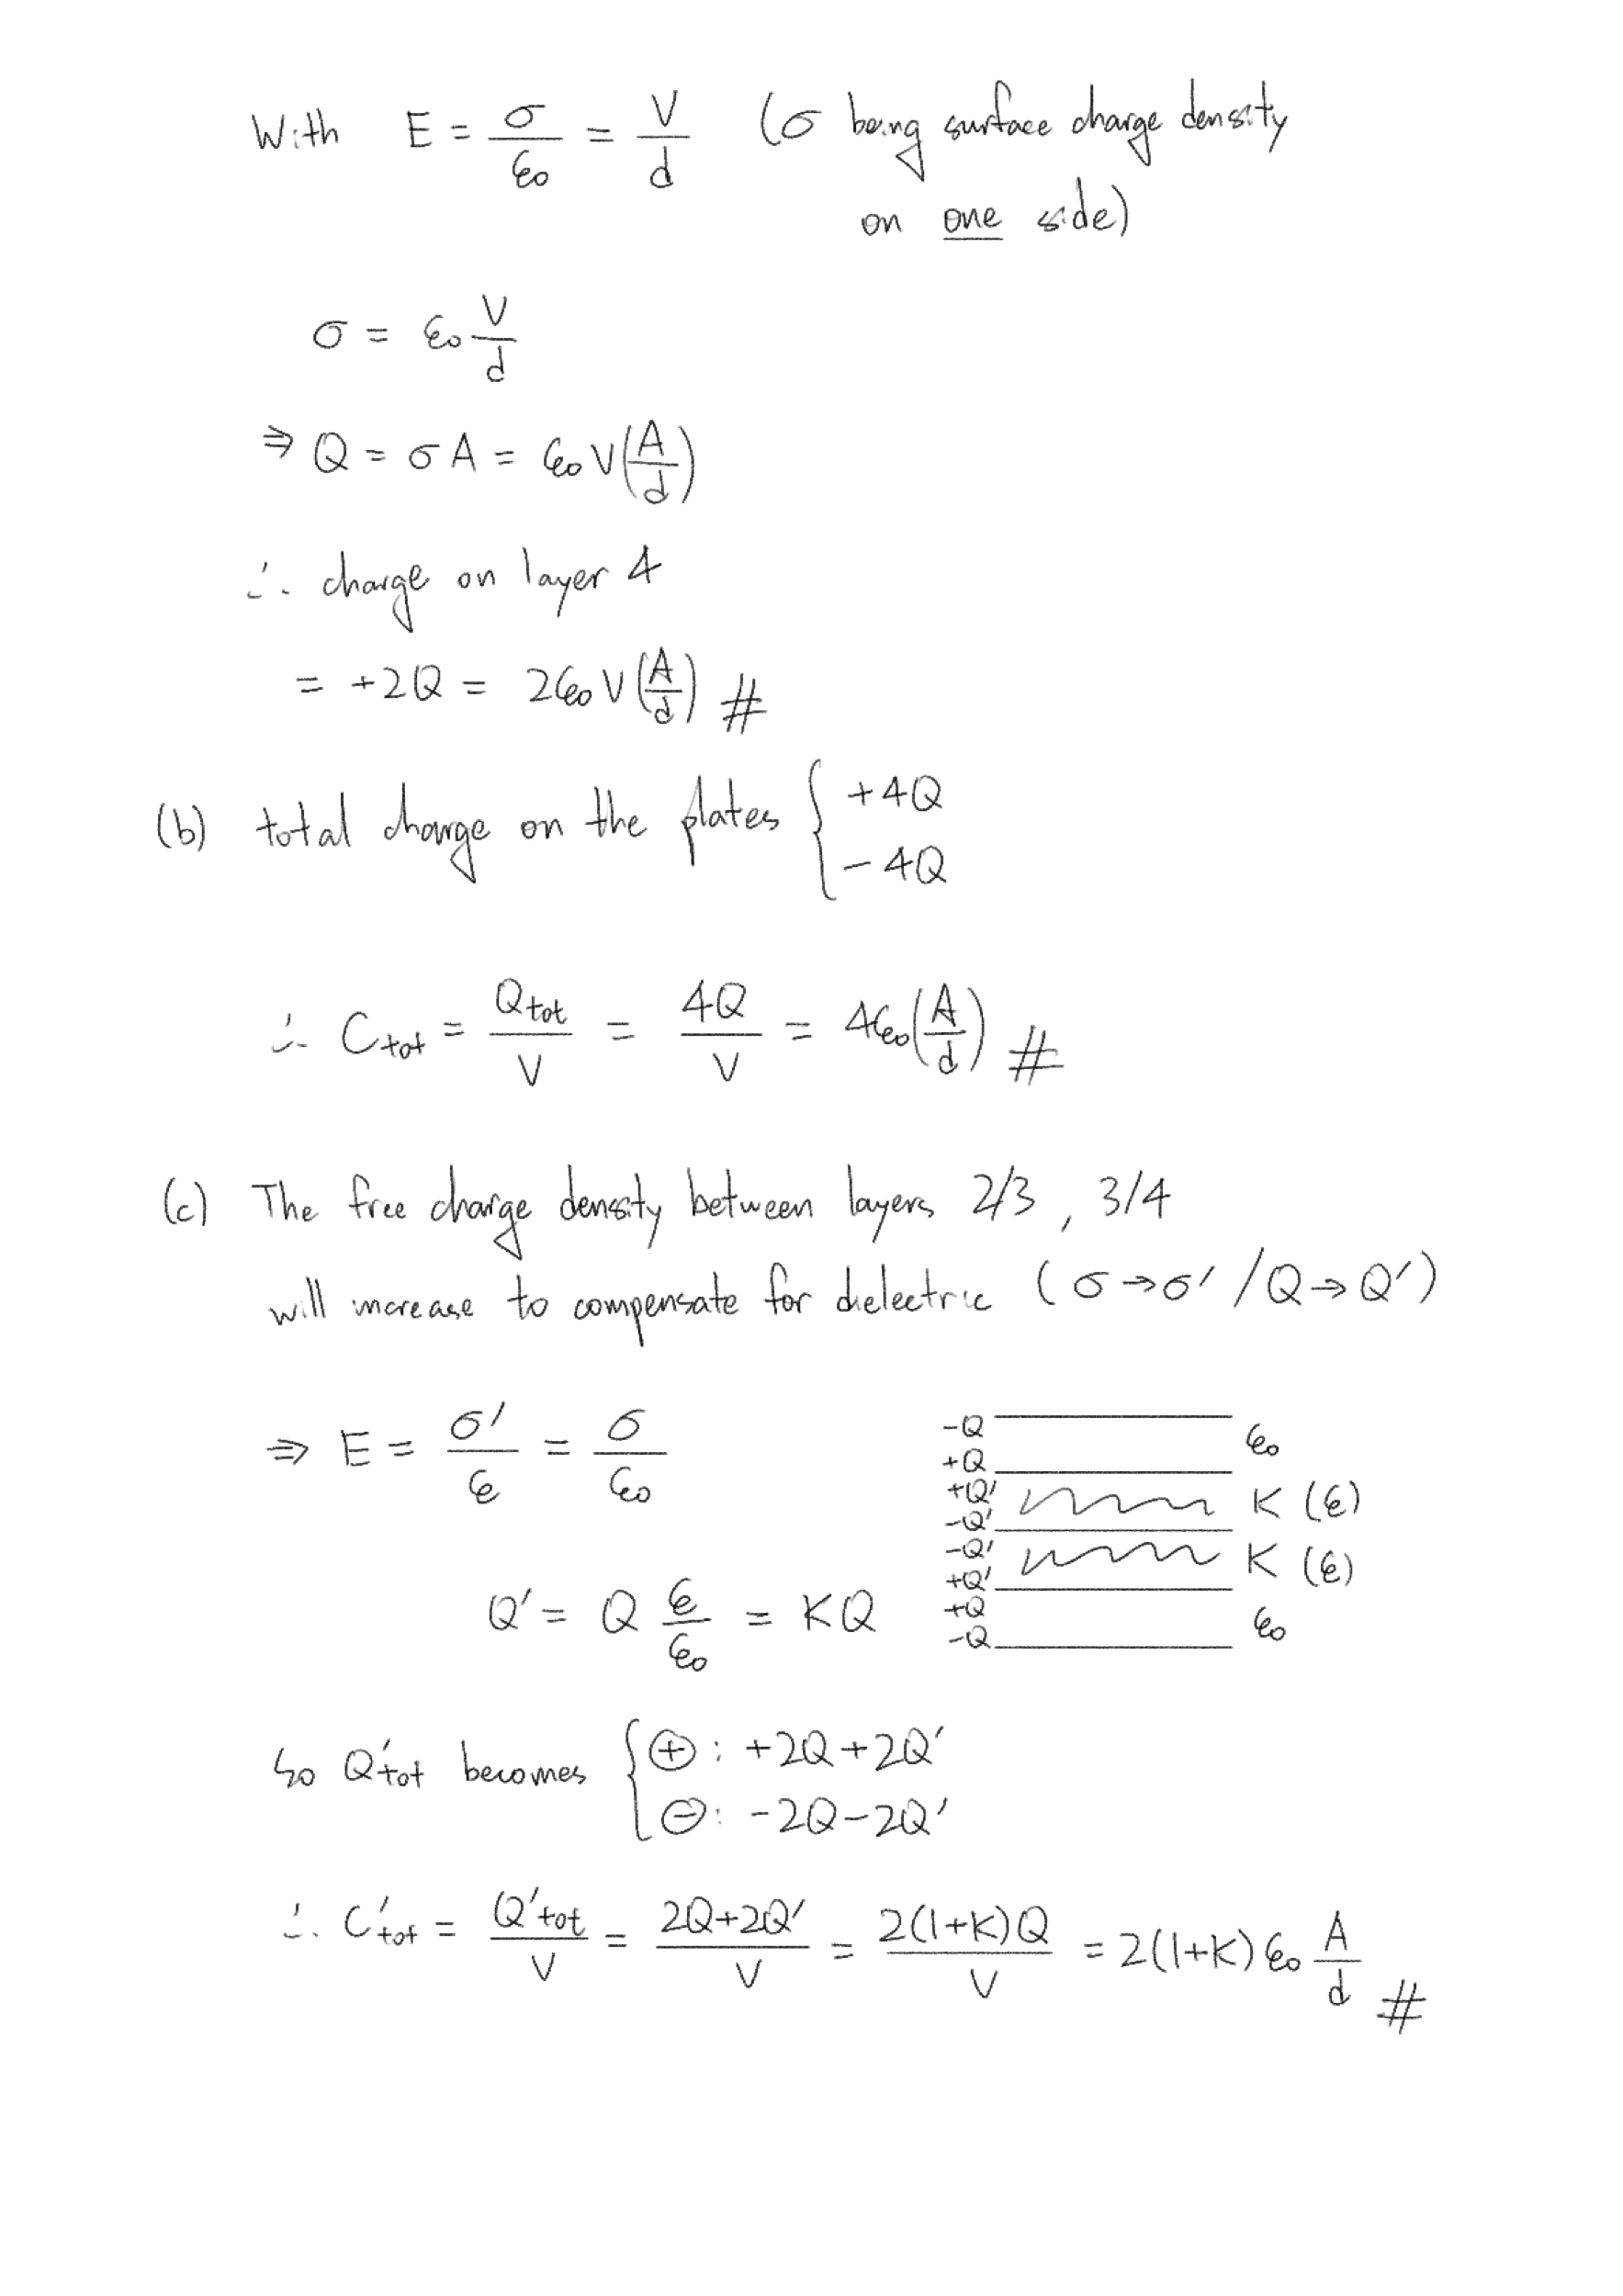 With E = σ/ε₀ = V/d (σ being surface charge density
on one side)
σ = ε₀ V/d
⇒ Q = σA = ε₀V(A/d)
∴ charge on layer 4
= +2Q = 2ε₀V(A/d) #
(b) total charge on the plates { +4Q
-4Q
∴ Ctot = Qtot/V = 4Q/V = 4ε₀(A/d) #
(c) The free charge density between layers 2/3, 3/4
will increase to compensate for dielectric (σ→σ' / Q→Q')
⇒ E = σ'/ε = σ/ε₀
-Q
ε₀
+Q
+Q'
K (ε)
-Q'
-Q'
K (ε)
+Q'
+Q
ε₀
-Q
Q' = Q ε/ε₀ = KQ
so Q'tot becomes { ⊕: +2Q+2Q'
⊖: -2Q-2Q'
∴ C'tot = Q'tot/V = 2Q+2Q'/V = 2(1+K)Q/V = 2(1+K)ε₀ A/d #